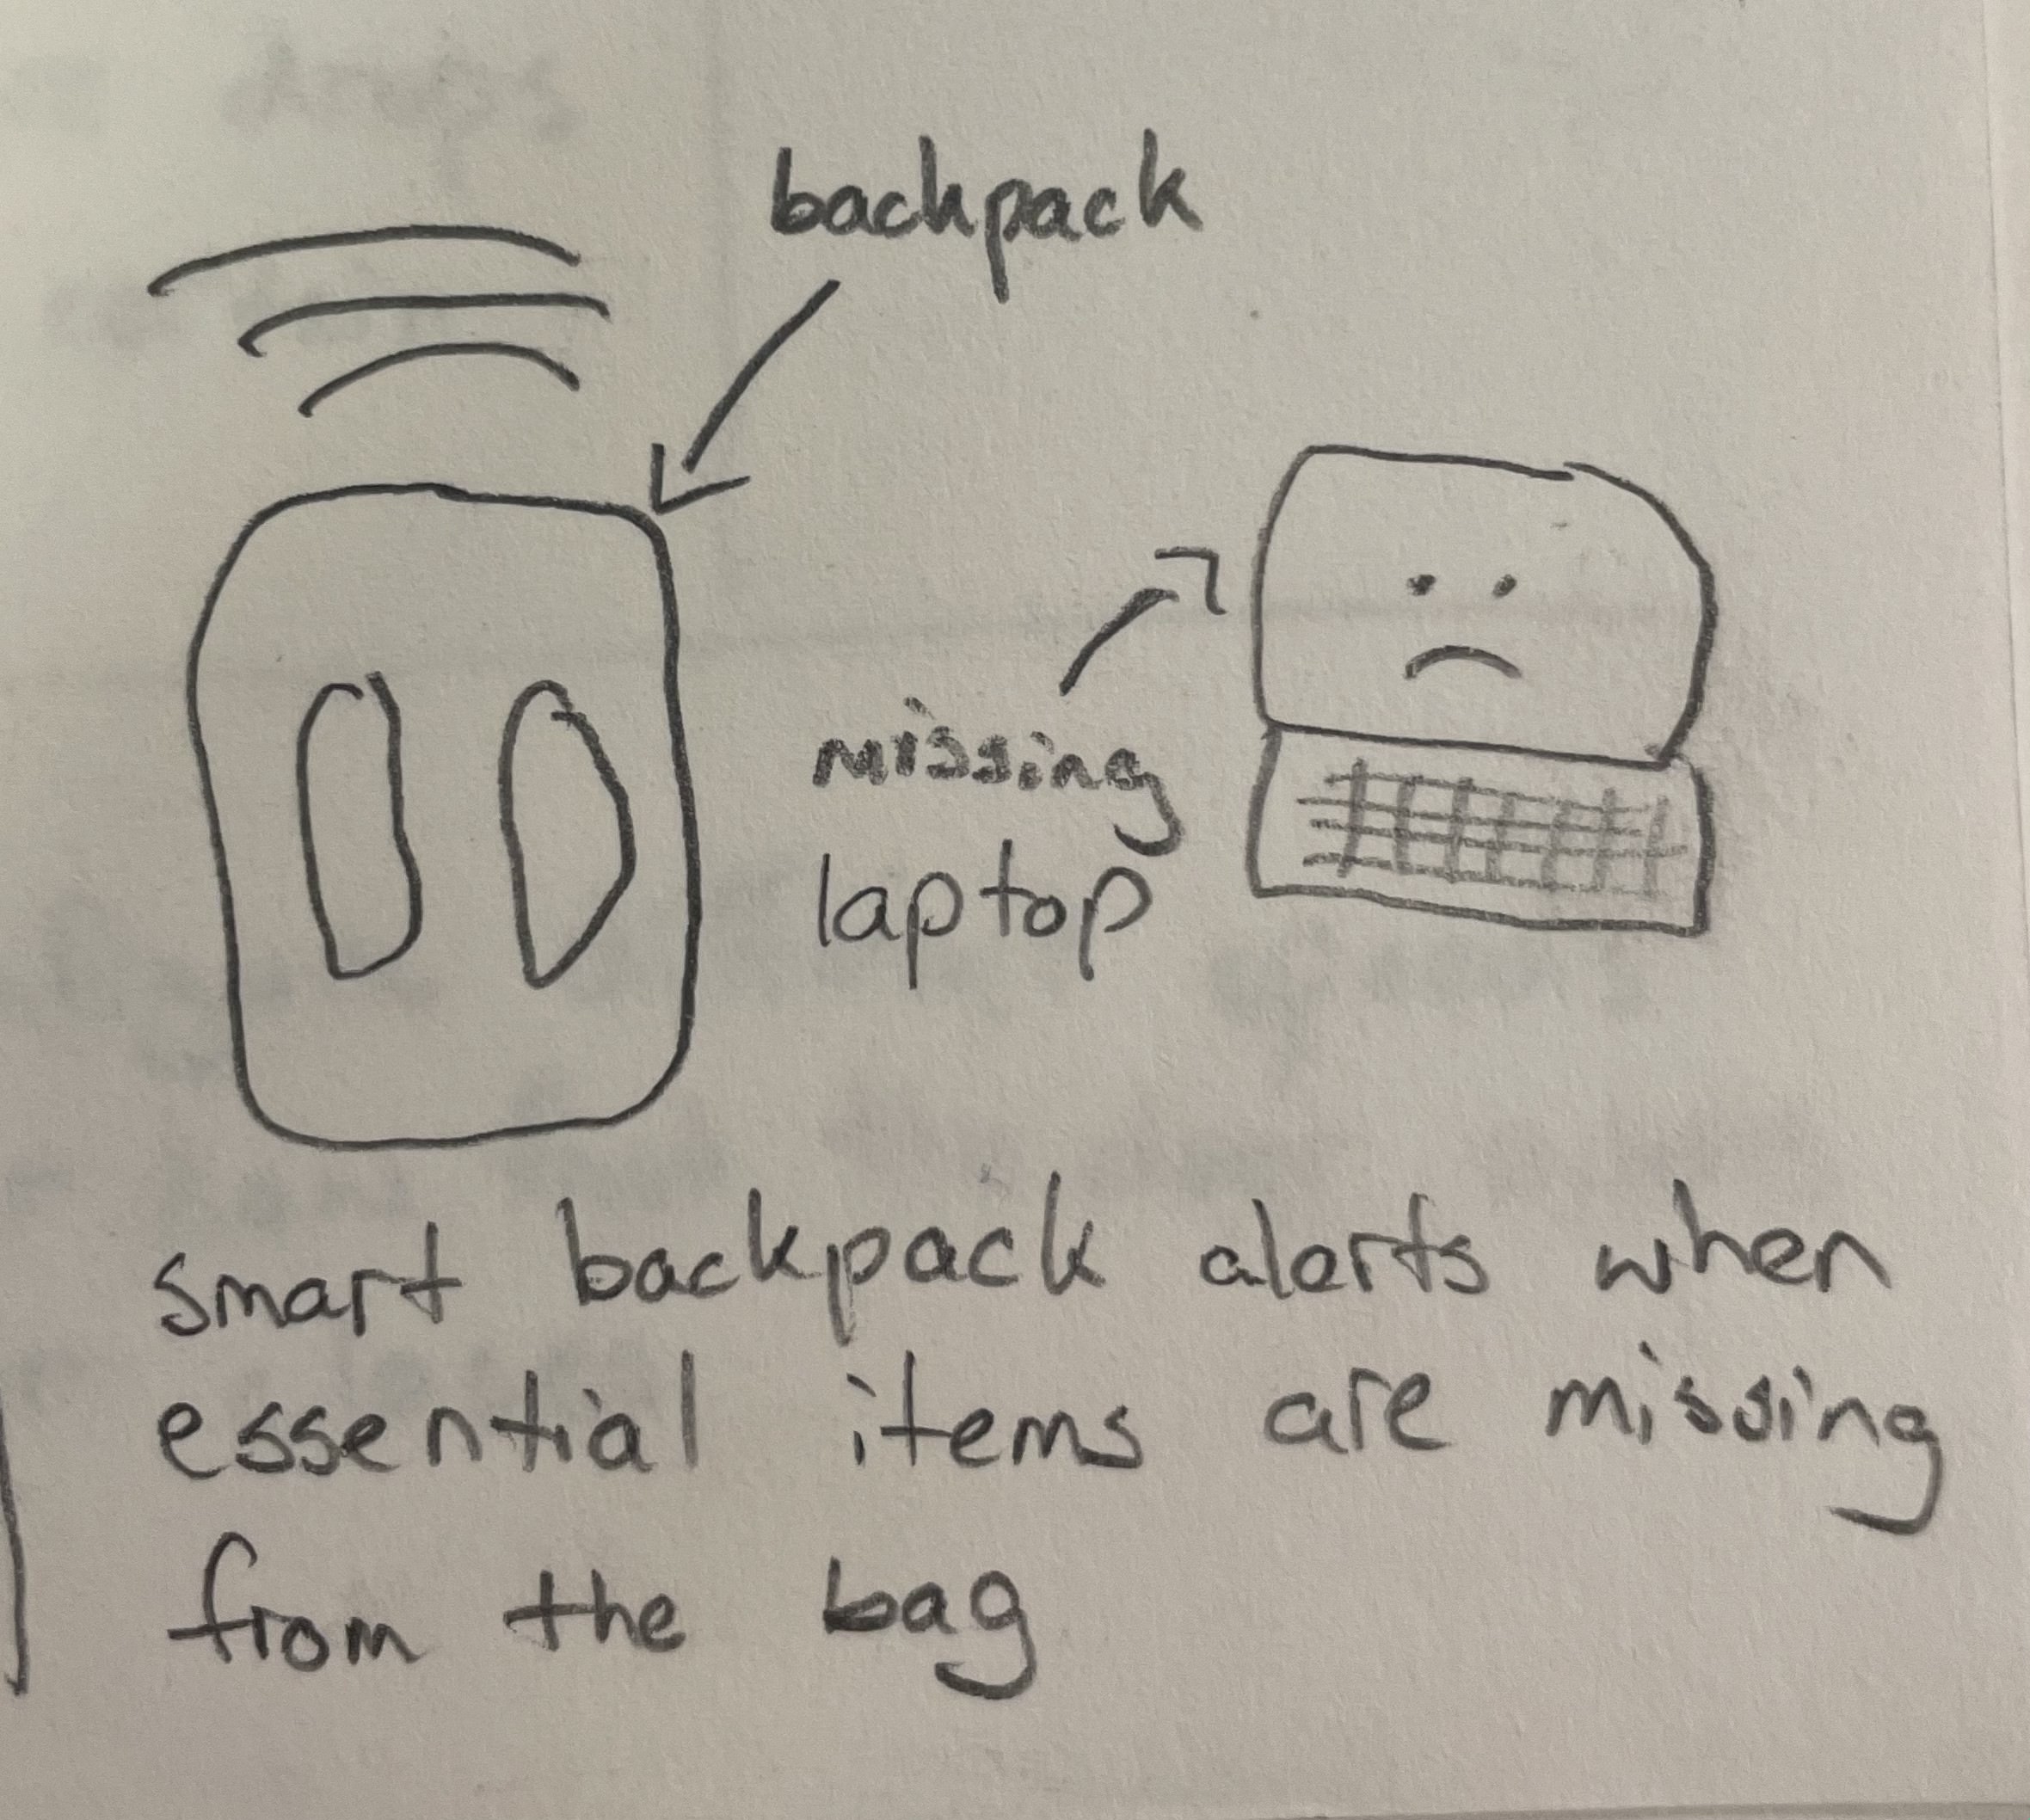 backpack
missing
laptop
smart backpack alerts when
essential items are missing
from the bag